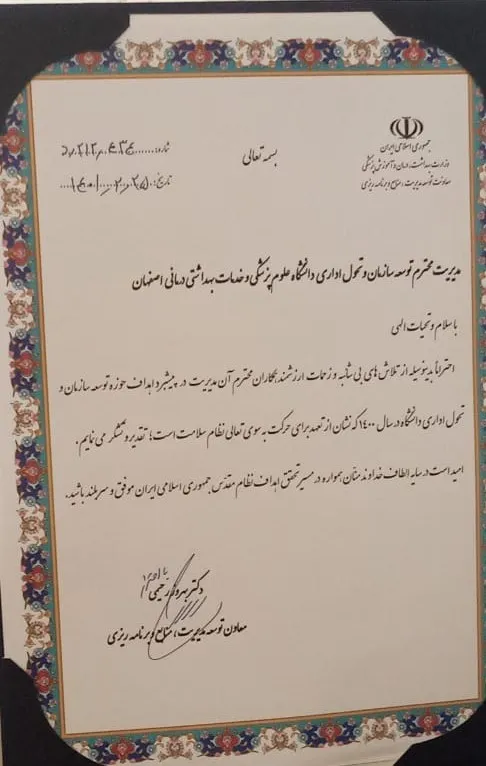 جمهوری اسلامی ایران
وزارت بهداشت، درمان و آموزش پزشکی
معاونت توسعه مدیریت، منابع و برنامه ریزی
بسمه تعالی
شماره:
تاریخ:
مدیریت محترم توسعه سازمان و تحول اداری دانشگاه علوم پزشکی و خدمات بهداشتی درمانی اصفهان
با سلام و تحیات الهی
احتراماً بدینوسیله از تلاش های بی شائبه و زحمات ارزشمند همکاران محترم آن مدیریت در پیشبرد اهداف حوزه توسعه سازمان و
تحول اداری دانشگاه در سال ۱۴۰۰ که نشان از تعهد برای حرکت به سوی تعالی نظام سلامت است؛ تقدیر و تشکر می نمایم.
امید است در سایه الطاف خداوند منان همواره در مسیر تحقق اهداف نظام مقدس جمهوری اسلامی ایران موفق و سربلند باشید.
با احترام
دکتر بهروز رحیمی
معاون توسعه مدیریت، منابع و برنامه ریزی